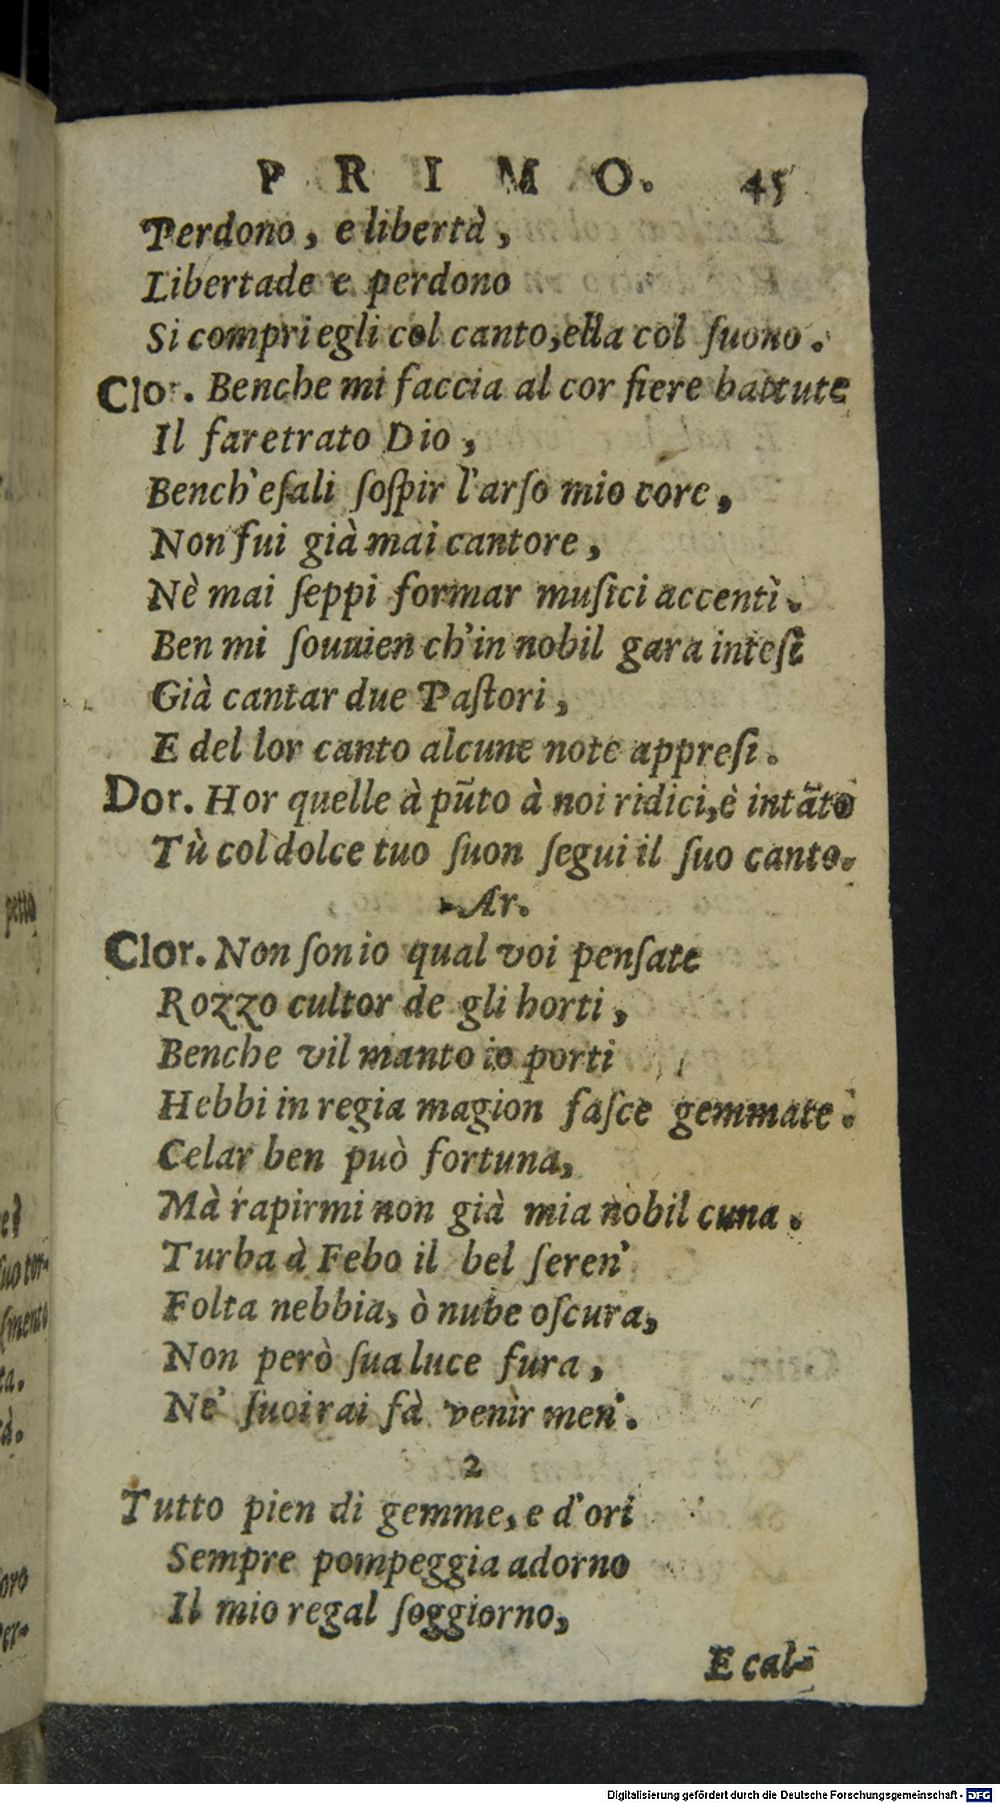 PRIMO. 45
Perdono, e libertà,
Libertade e perdono
Si compri egli col canto, ella col ſuono.
Clor. Benche mi faccia al cor fiere battute
Il faretrato Dio,
Bench'eſali ſoſpir l'arſo mio core,
Non fui già mai cantore,
Nè mai ſeppi formar muſici accentì.
Ben mi ſouuien ch'in nobil gara inteſi
Già cantar due Paſtori,
E del lor canto alcune note appreſi.
Dor. Hor quelle à pũto à noi ridici, è intãto
Tù col dolce tuo ſuon ſegui il ſuo canto.
Ar.
Clor. Non ſon io qual voi penſate
Rozzo cultor de gli horti,
Benche vil manto io porti
Hebbi in regia magion faſce gemmate.
Celar ben può fortuna,
Mà rapirmi non già mia nobil cuna.
Turba à Febo il bel ſeren'
Folta nebbia, ò nube oſcura,
Non però ſua luce fura,
Ne' ſuoi rai fà venìr men'.
2
Tutto pien di gemme, e d'ori
Sempre pompeggia adorno
Il mio regal ſoggiorno,
E cal-
petto
Digitalisierung gefördert durch die Deutsche Forschungsgemeinschaft - DFG